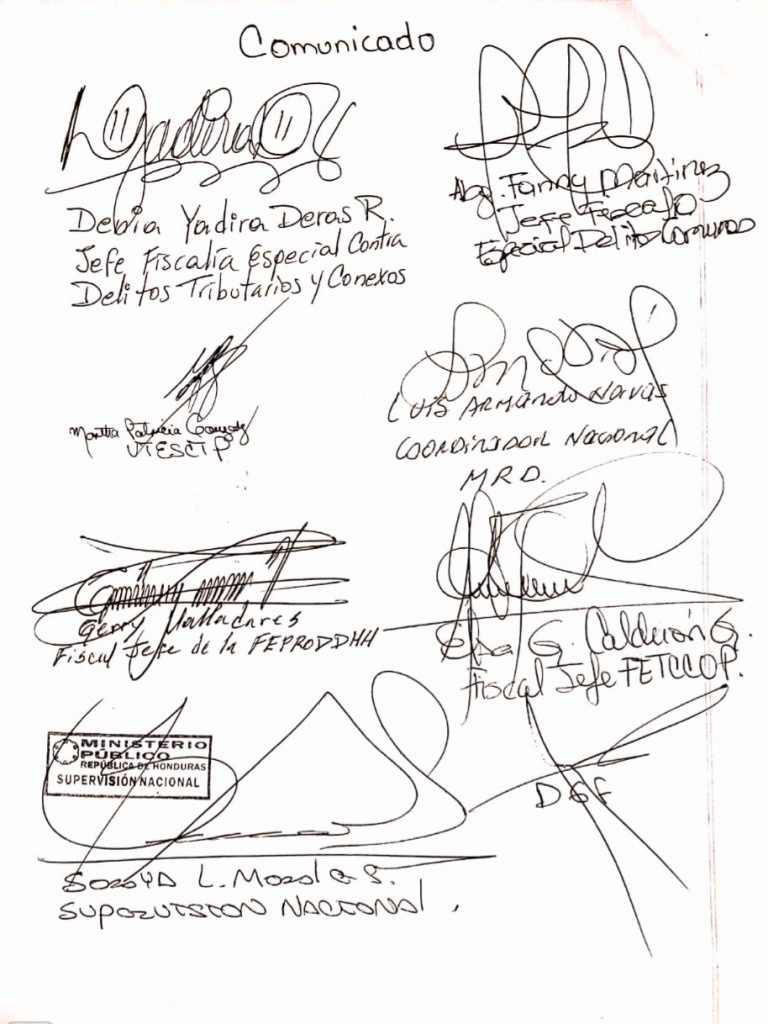 Comunicado
Yadira
Denia Yadira Deras R.
Jefe Fiscalía Especial Contra
Delitos Tributarios y Conexos
Abg. Fanny Martinez
Jefe Fiscalía
Especial Delitos Comunes
Martha Patricia
UTESCTP
LUIS ARMANDO NAVAS
COORDINADOR NACIONAL
M.R.D.
Gerry Valladares
Fiscal Jefe de la FEPRODDHH
Elsa G. Calderón G.
Fiscal Jefe FETCCOP.
MINISTERIO
PÚBLICO
REPÚBLICA DE HONDURAS
SUPERVISIÓN NACIONAL
DGF
SORAYA L. Morales.
SUPERVISION NACIONAL.